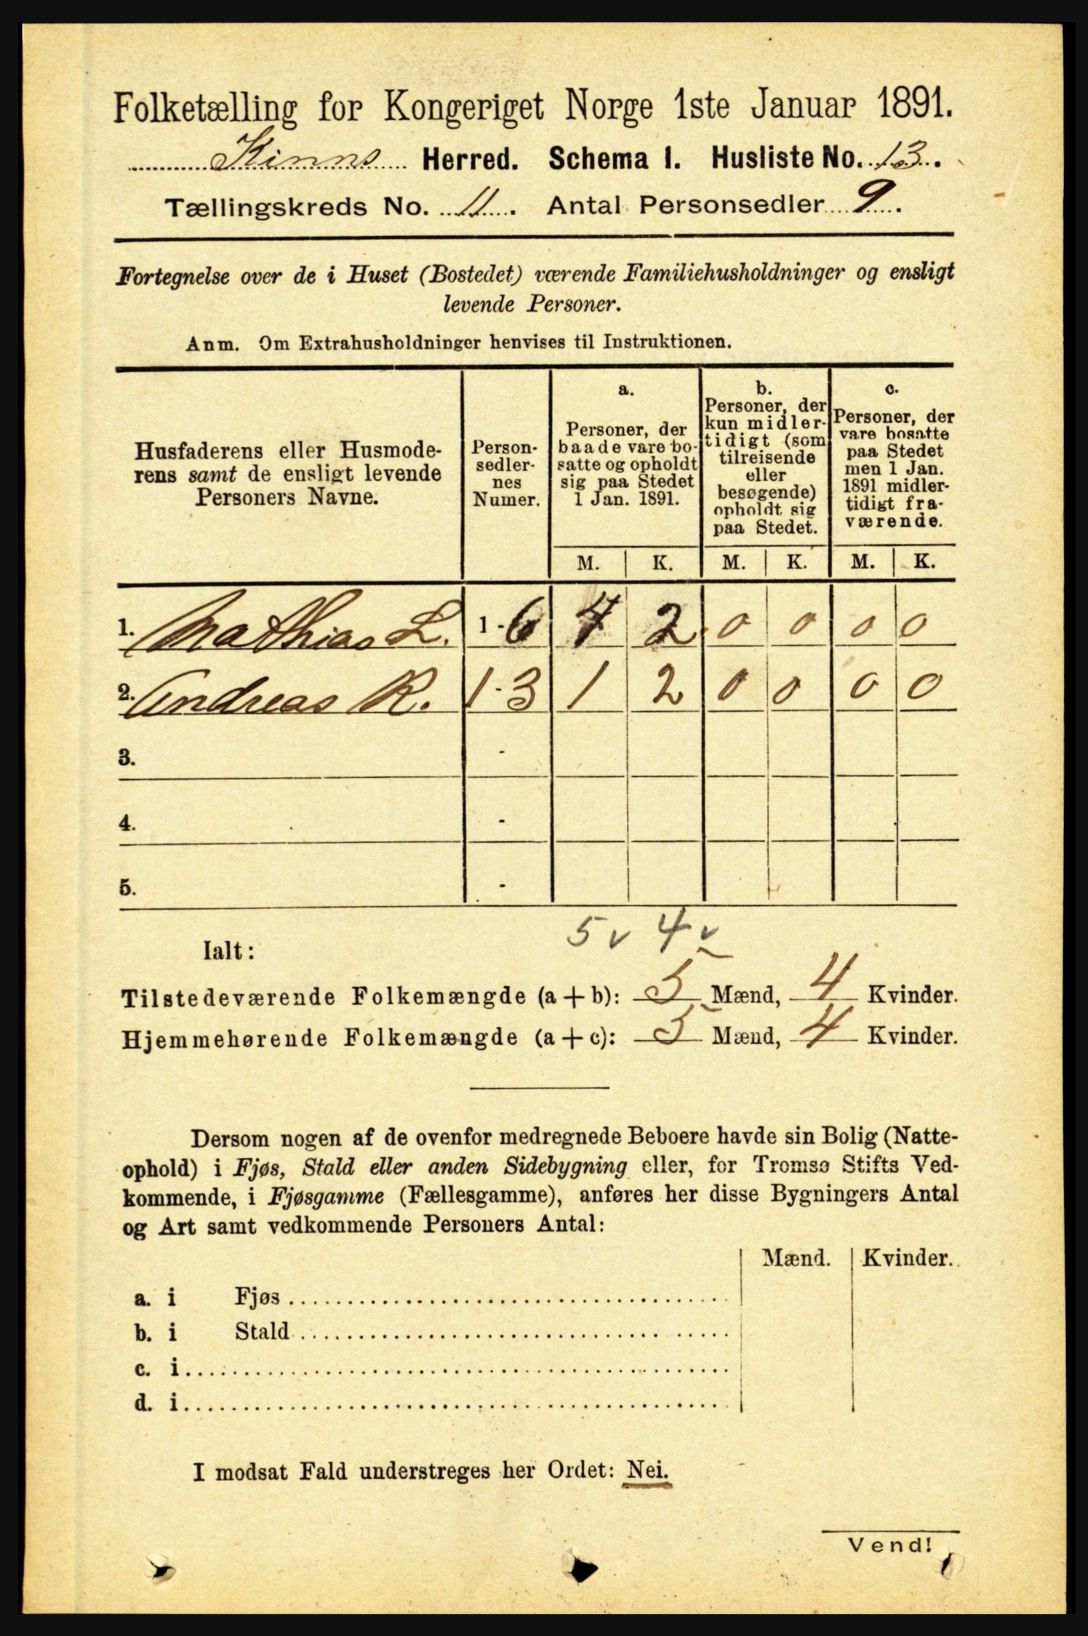 Folketælling for Kongeriget Norge 1ste Januar 1891.
Kinns Herred. Schema I. Husliste No. 13.
Tællingskreds No. 11. Antal Personsedler 9.
Fortegnelse over de i Huset (Bostedet) værende Familiehusholdninger og ensligt
levende Personer.
Anm. Om Extrahusholdninger henvises til Instruktionen.
Husfaderens eller Husmode-
rens samt de ensligt levende
Personers Navne.
Person-
sedler-
nes
Numer.
a.
Personer, der
baade vare bo-
satte og opholdt
sig paa Stedet
1 Jan. 1891.
b.
Personer, der
kun midler-
tidigt (som
tilreisende
eller
besøgende)
opholdt sig
paa Stedet.
c.
Personer, der
vare bosatte
paa Stedet
men 1 Jan.
1891 midler-
tidigt fra-
værende.
M. K. M. K. M. K.
1. Mathias L. 1-6 4 2 0 0 0 0
2. Andreas R. 1-3 1 2 0 0 0 0
3. -
4. -
5. -
5 v 4 v
Ialt:
Tilstedeværende Folkemængde (a + b): 5 Mænd, 4 Kvinder.
Hjemmehørende Folkemængde (a + c): 5 Mænd, 4 Kvinder.
Dersom nogen af de ovenfor medregnede Beboere havde sin Bolig (Natte-
ophold) i Fjøs, Stald eller anden Sidebygning eller, for Tromsø Stifts Ved-
kommende, i Fjøsgamme (Fællesgamme), anføres her disse Bygningers Antal
og Art samt vedkommende Personers Antal:
Mænd. Kvinder.
a. i Fjøs
b. i Stald
c. i
d. i
I modsat Fald understreges her Ordet: Nei.
Vend!